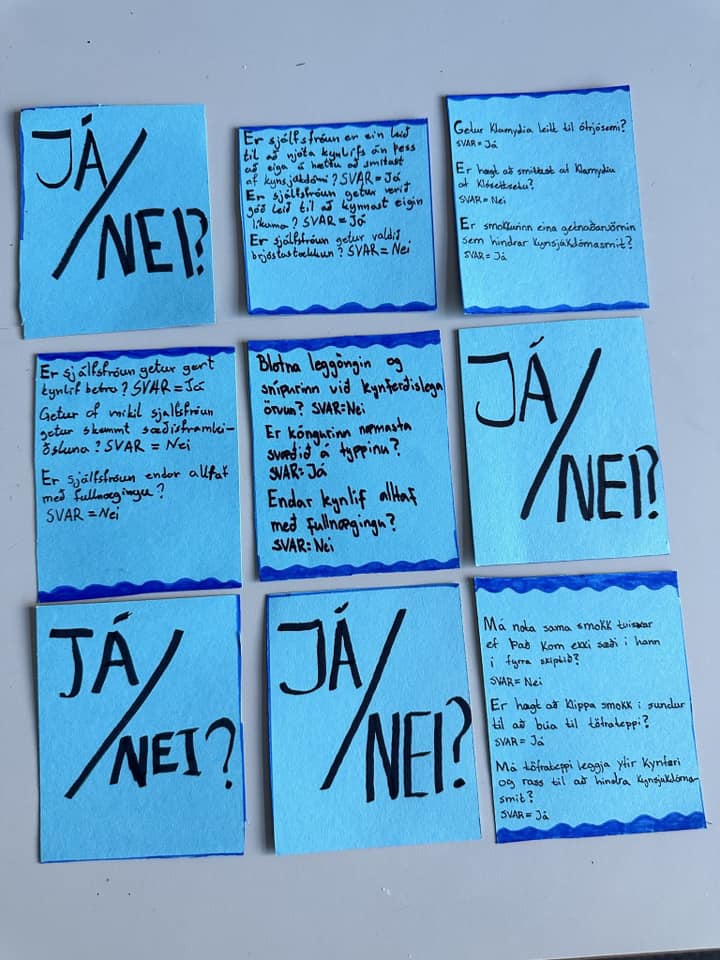 JÁ/
NEI?
Er sjálfsfróun er ein leið
til að njóta kynlífs án þess
að eiga á hættu að smitast
af kynsjúkdómi? SVAR=Já
Er sjálfsfróun getur verið
góð leið til að kynnast eigin
líkama? SVAR=Já
Er sjálfsfróun getur valdið
brjóstastækkun? SVAR=Nei
Getur Klamydía leitt til ófrjósemi?
SVAR= Já
Er hægt að smitast af Klamydíu
af Klósettsetu?
SVAR= Nei
Er smokkurinn eina getnaðarvörnin
sem hindrar kynsjúkdómasmit?
SVAR= Já
Er sjálfsfróun getur gert
kynlíf betra? SVAR=Já
Getur of mikil sjálfsfróun
getur skemmt sæðisframlei-
ðsluna? SVAR = Nei
Er sjálfsfróun endar alltaf
með fullnægingu?
SVAR=Nei
Blotna leggöngin og
snípurinn við kynferðislega
örvun? SVAR=Nei
Er kóngurinn næmasta
svæðið á typpinu?
SVAR: Já
Endar kynlíf alltaf
með fullnægingu?
SVAR: Nei
JÁ/
NEI?
JÁ/
NEI?
JÁ/
NEI?
Má nota sama smokk tvisvar
ef það kom ekki sæði í hann
í fyrra skiptið?
SVAR= Nei
Er hægt að Klippa smokk í sundur
til að búa til töfrateppi?
SVAR= Já
Má töfrateppi leggja yfir Kynfæri
og rass til að hindra Kynsjúkdóma-
smit?
SVAR= Já